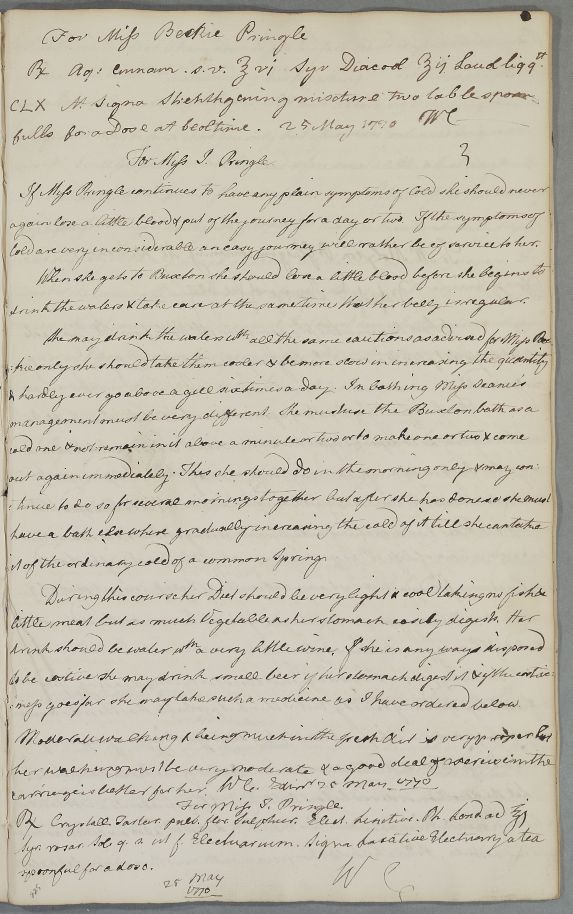 For Miss Beckie Pringle
Rx Aq: Cinnam. s.v. ℥vj Syr Diacod ℥ij Laud liq gtt
CLX M. Signa Strengthening mixture two table spoon-
fulls for a Dose at bedtime. 25 May 1770 WC
For Miss J. Pringle
If Miss Pringle continues to have any plain symptoms of Cold she should never
again lose a little blood & put of the journey for a day or two. If the symptoms of
Cold are very inconsiderable an easy journey will rather be of service to her.
When she gets to Buxton she should lose a little blood before she begins to
drink the waters & take care at the same time that her belly is regular.
She may drink the waters wth all the same cautions as advised for Miss Bec
:kie only she should take them cooler & be more slow in increasing the quantity
& hardly ever go above a gill six times a day. In bathing Miss Jeanies
management must be very different. She must use the Buxton bath as a
cold one & not remain in it above a minute or two or to make one or two & come
out again immediately. This she should do in the morning only & may con:
:tinue to do so for several mornings together but after she has done so she must
have a bath elsewhere gradually increasing the cold of it till she can take
it of the ordinary cold of a common Spring.
During this course her Diet should be very light & cool taking no fish &
little meat but as much Vegetable as her stomach easily digests. Her
drink should be water wth a very little wine, if she is any ways disposed
to be costive she may drink small beer if her stomach digest it & if the costive:
:ness goes far she may take such a medicine as I have ordered below
Moderate walking & being much in the fresh Air is very proper but
her walking must be very moderate & a good deal of exercise in the
carriage is better for her. W C. Edinr 25 May 1770
For Miss J. Pringle.
Rx Crystall. Tartar. pulv. flor Sulphur. Elect. lenitiv. Ph. Lond. ad ℥j
Syr. rosar. Sol. q. s. ut f. Electuarium. Signa Laxative Electuary a tea
spoonful for a dose.
25 May
1770
W C